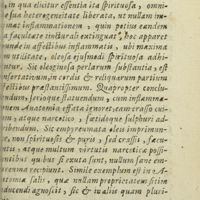 , in qua elicitur essentia ita spirituosa, omni-
osius heterogeneitate liberata, ut nullam ne-
at inflammationem, quin potius eandem
a facultate tincturali extinguat, hoc apparet
unde in affectibus inflammatis, ubi maxima
m utilitate, oleosa ejusmodi spirituosa adhi-
tur. Sic oleaginosa perlarum substantia, est
nfortativum, in cordis & reliquarum partium
fectibus præstantissimum. Quapropter conclu-
ndum, seriòque statuendum, cum inflamma-
nem Anatomia essata ignoret, eam crasso cui-
atque narcotico, fœtidoque sulphuri ad-
ribendam. Sic empyreumata oleis imprimun-
, non spirituosis & puris, sed crassis, fœcu-
tis, atque multum virtutis narcoticæ possi-
tibus quibus si exuta sunt, nullum sanè em-
reuma recipiunt. Simile exemplum est in A-
omia salis, quæ nullam proprietatem sitim
ducendi agnoscit, sic & in aliis quam pluri-